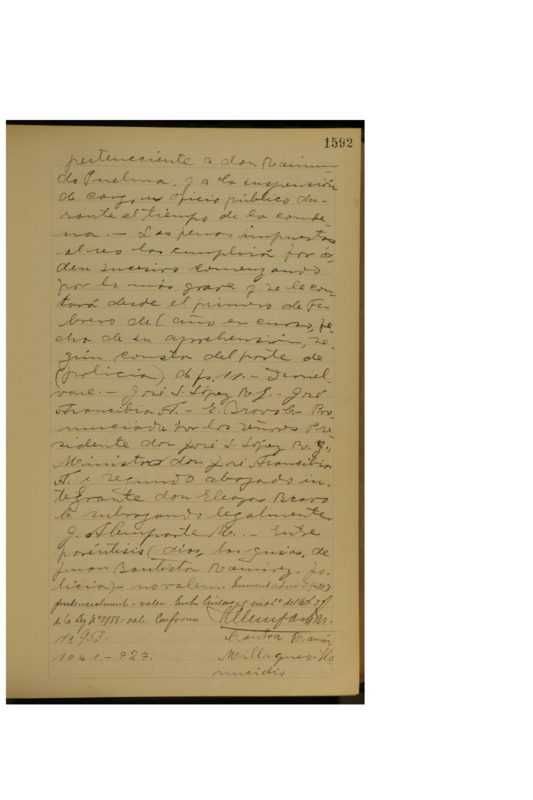 1592
perteneciente a don Raimun-
do Puelma, y a la suspensión
de cargo u oficio público du-
rante el tiempo de la conde-
na.- Las penas impuestas
al reo las cumplirá por ór-
den sucesivo comenzando
por la más grave y se le con-
tará desde el primero de Fe-
brero del año en curso, fe-
cha de su aprehensión, se-
gún consta del parte de
(policia) de fs. 11.- Devuél-
vase.- José S. López R. G.- José
Arancibia A.- E. Bravo L. Pro-
nunciada por los señores Pre-
sidente don José S. López R. G.,
Ministro don José Arancibia
A. i segundo abogado in-
tegrante don Eleazar Bravo
L. subrogando legalmente
G. Alemparte R..- Entre
paréntesis (dias, las guias, de
Juan Bautista Ramirez, po-
licia)- no valen.
prudencialmente- valen. Entre lineas
de la Ley Nº vale. Conforme
Nº 953.- Contra Ramón
Nº 41-927. Millaqueo. Ho-
micidio